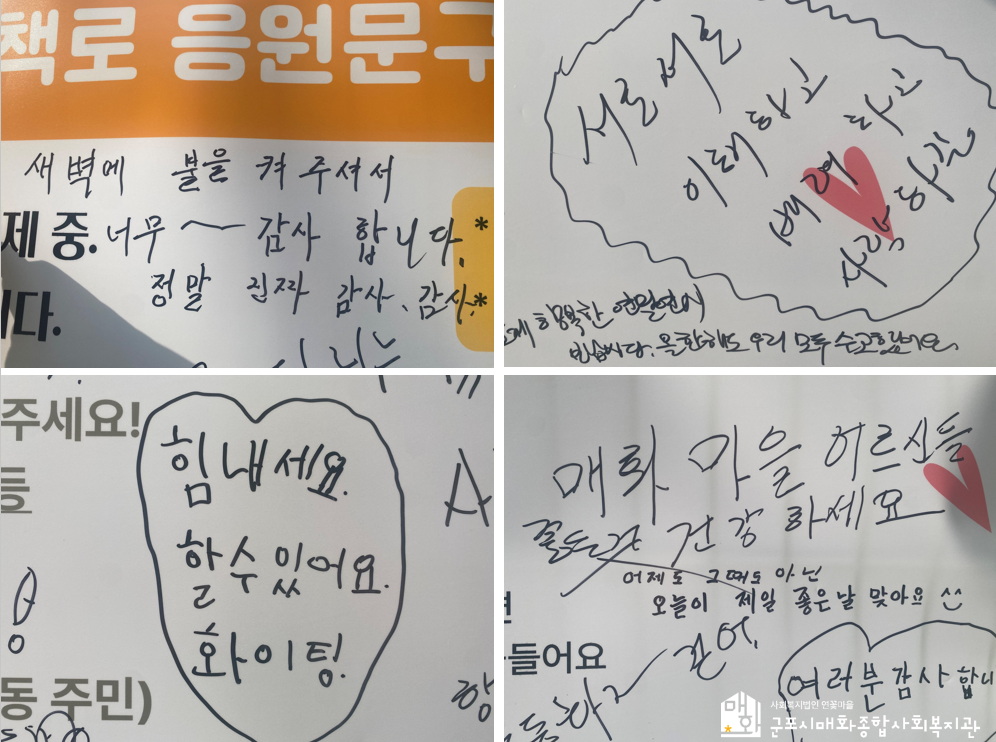 책로 응원문구
새벽에 불을 켜 주셔서
제 중. 너무 ~ 감사 합니다.*
정말 진짜 감사. 감사.*
다.
서로서로
이해하고
배려하고
사랑하길
행복한 연말연시
올한해도 우리 모두 수고했어요
주세요!
힘내세요.
할 수 있어요.
화이팅!
동 주민)
매화 마을 어르신들
건강하세요
어제도 그때도 아닌
오늘이 제일 좋은날 맞아요 ^^
들어요
여러분 감사합니
매화
사회복지법인 인꽃마을
군포시매화종합사회복지관